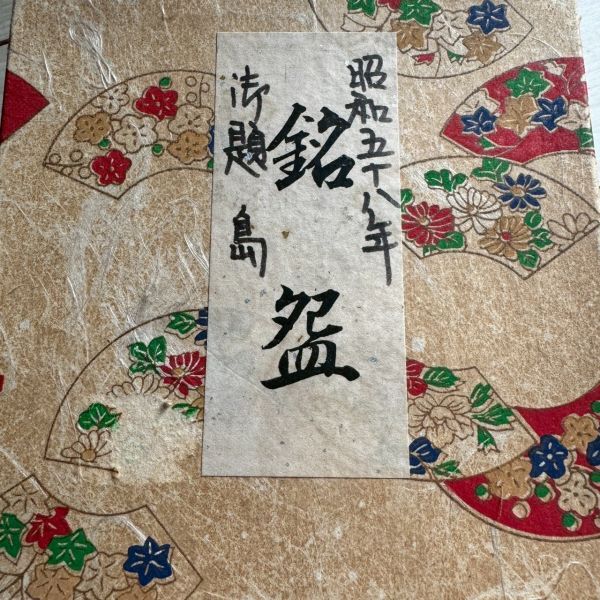 昭和五十八年
銘盌
御題 島